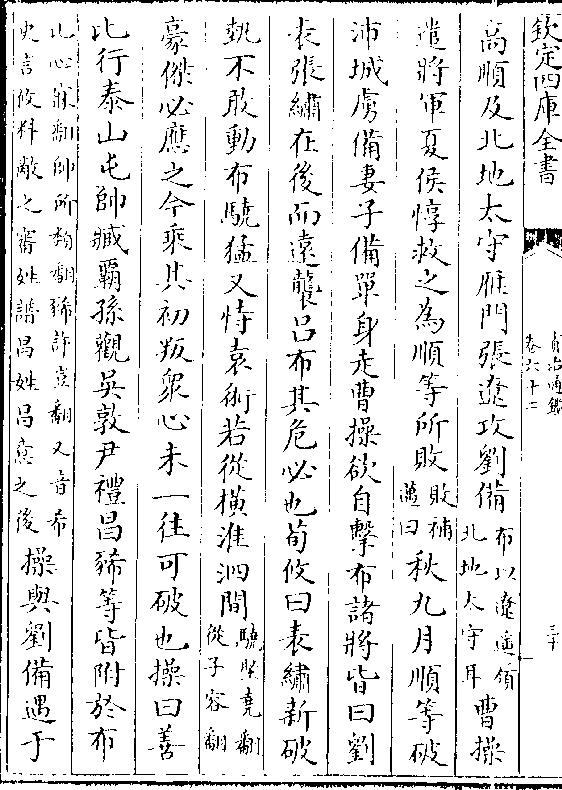 欽定四庫全書
資治通鑑
卷六十二
三十
高順及北地太守雁門張遼攻劉備布以遼遙領北地太守耳曹操
遣將軍夏侯惇救之為順等所敗敗補邁曰秋九月順等破
沛城虜備妻子備單身走曹操欲自擊布諸將皆曰劉
表張繡在後而遠襲吕布其危必也荀攸曰表繡新破
埶不敢動布驍猛又恃袁術若從横淮泗間驍堅堯翻從子容翻
豪傑必應之今乗其初叛衆心未一往可破也操曰善
比行泰山屯帥臧霸孫觀吳敦尹禮昌豨等皆附於布
比必寐翻帥所類翻豨許豈翻又音希史言攸料敵之審姓譜昌姓昌意之後操與劉備遇于